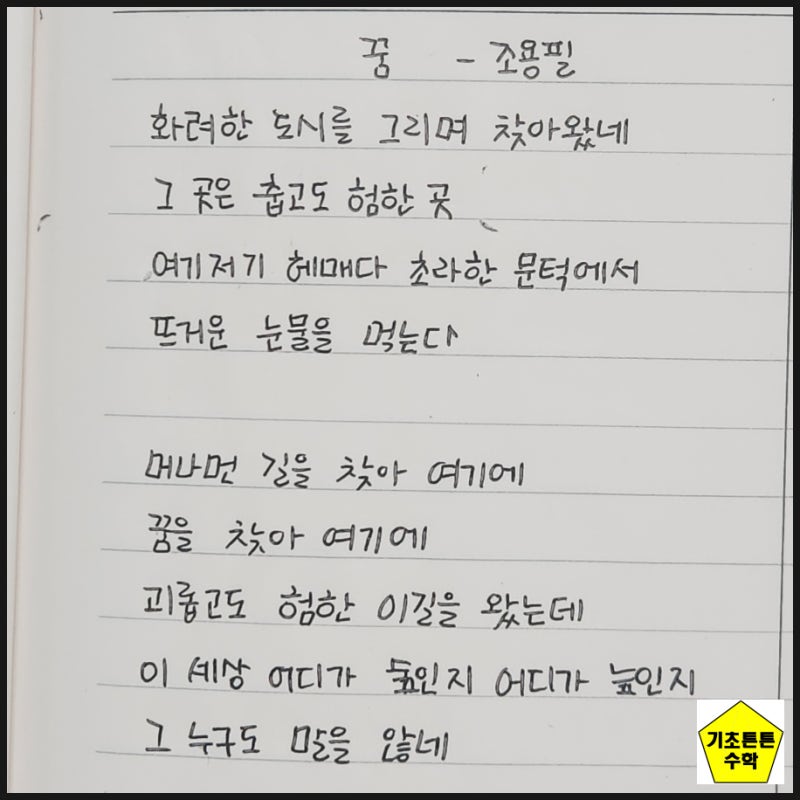 꿈 - 조용필
화려한 도시를 그리며 찾아왔네
그 곳은 춥고도 험한 곳
여기저기 헤매다 초라한 문턱에서
뜨거운 눈물을 먹는다
머나먼 길을 찾아 여기에
꿈을 찾아 여기에
괴롭고도 험한 이길을 왔는데
이 세상 어디가 숲인지 어디가 늪인지
그 누구도 말을 않네
기초튼튼
수학